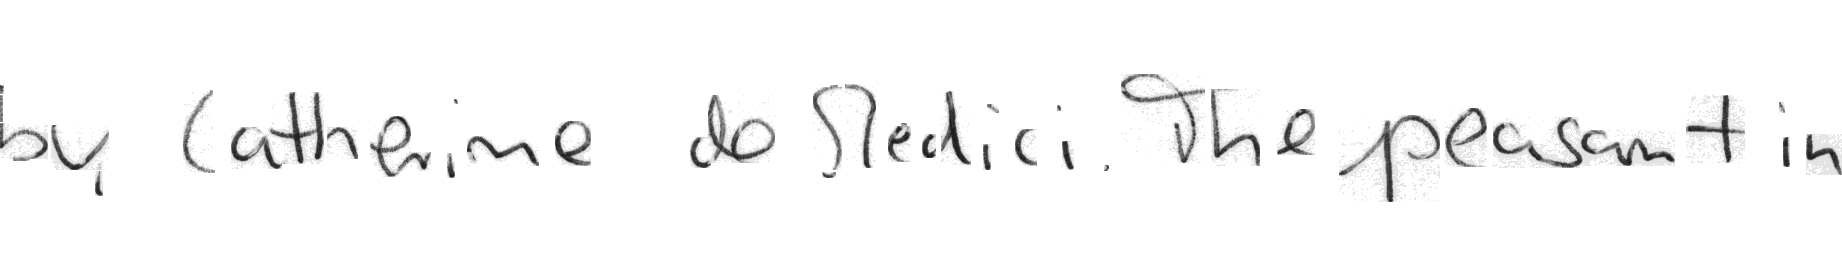 by Catherine de Medici. The peasant in